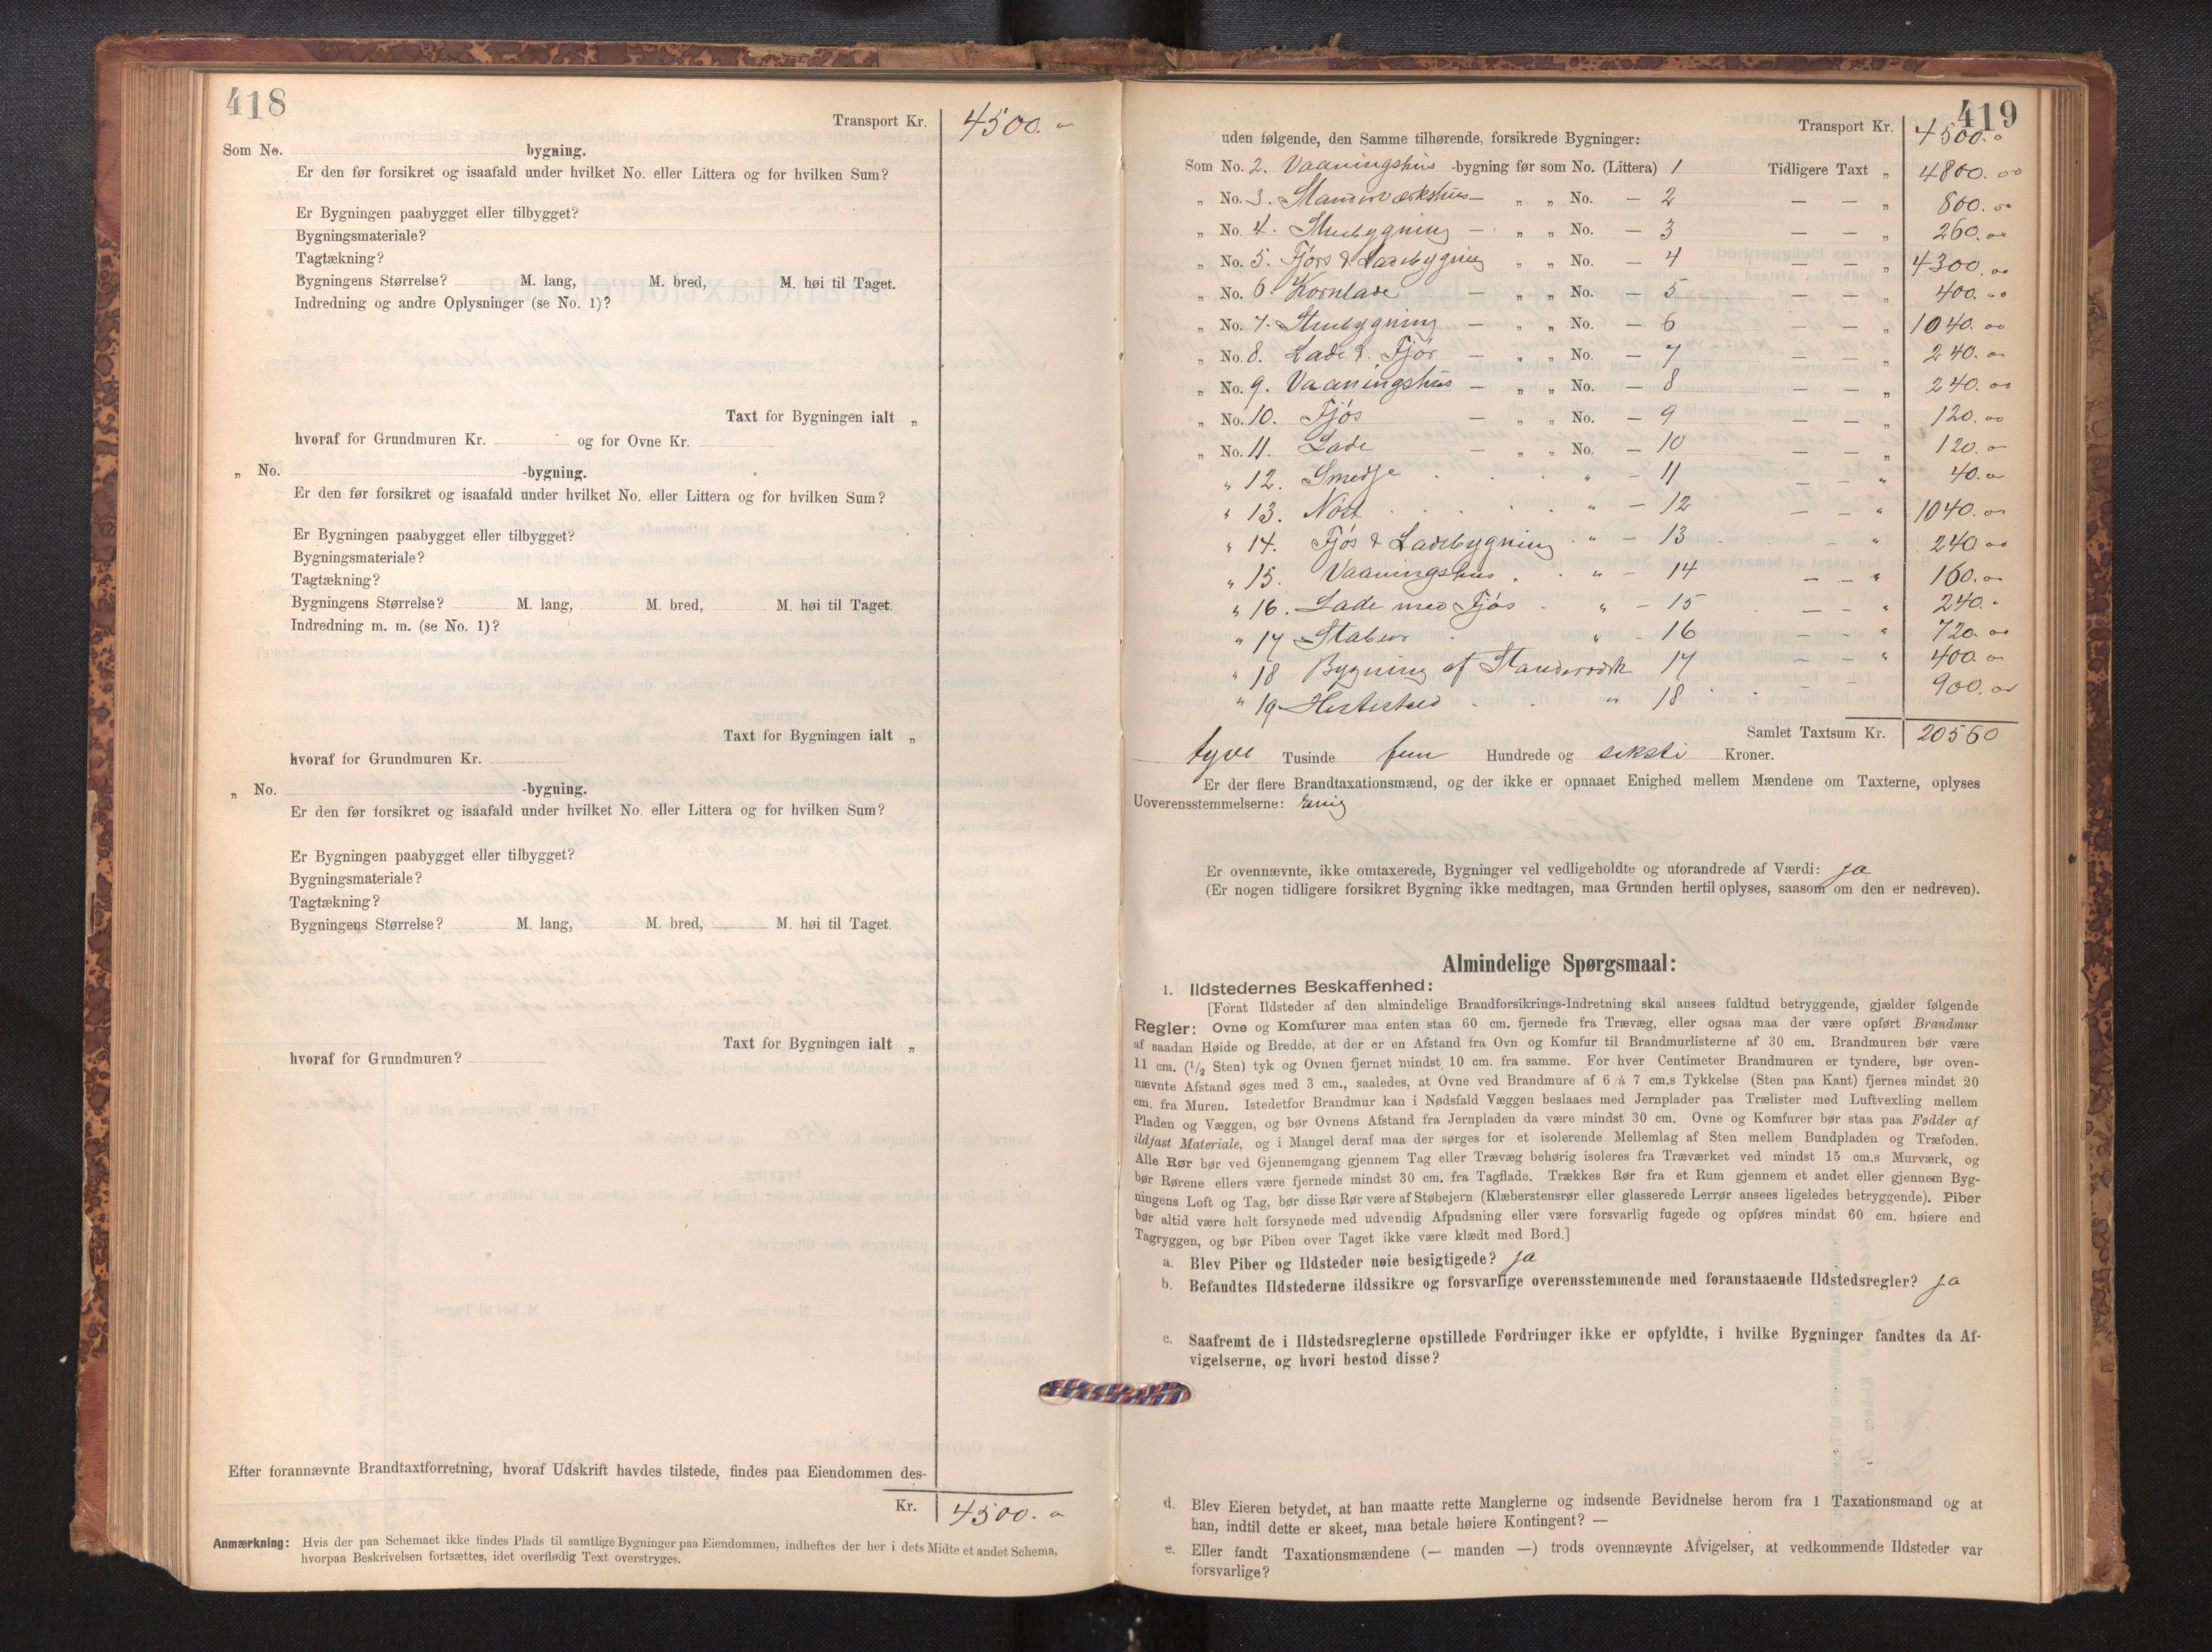 418
Transport Kr. 4500. „
Som No. bygning.
Er den før forsikret og isaafald under hvilket No. eller Littera og for hvilken Sum?
Er Bygningen paabygget eller tilbygget?
Bygningsmateriale?
Tagtækning?
Bygningens Størrelse? M. lang, M. bred, M. høi til Taget.
Indredning og andre Oplysninger (se No. 1)?
Taxt for Bygningen ialt „
hvoraf for Grundmuren Kr. og for Ovne Kr.
„ No. -bygning.
Er den før forsikret og isaafald under hvilket No. eller Littera og for hvilken Sum?
Er Bygningen paabygget eller tilbygget?
Bygningsmateriale?
Tagtækning?
Bygningens Størrelse? M. lang, M. bred, M. høi til Taget.
Indredning m. m. (se No. 1)?
Taxt for Bygningen ialt „
hvoraf for Grundmuren Kr.
„ No. -bygning.
Er den før forsikret og isaafald under hvilket No. eller Littera og for hvilken Sum?
Er Bygningen paabygget eller tilbygget?
Bygningsmateriale?
Tagtækning?
Bygningens Størrelse? M. lang, M. bred, M. høi til Taget.
Taxt for Bygningen ialt „
hvoraf for Grundmuren?
Efter forannævnte Brandtaxtforretning, hvoraf Udskrift havdes tilstede, findes paa Eiendommen des-
Kr. 4500. „
Anmærkning: Hvis der paa Schemaet ikke findes Plads til samtlige Bygninger paa Eiendommen, indheftes der her i dets Midte et andet Schema,
hvorpaa Beskrivelsen fortsættes, idet overflødig Text overstryges.
419
Transport Kr. 4500. „
uden følgende, den Samme tilhørende, forsikrede Bygninger:
Som No. 2. Vaaningshus -bygning før som No. (Littera) 1 Tidligere Taxt „ 4800. 00
„ No. 3. Standerværkshus — „ „ No. — 2 — — „ 800. 00
„ No. 4. Stuebygning — „ „ No. — 3 — — „ 260. 00
„ No. 5. Fjøs & Ladebygning „ „ No. — 4 — — „ 4300. 00
„ No. 6. Kornlade — „ „ No. — 5 — — „ 400. 00
„ No. 7. Stuebygning — „ „ No. — 6 — — „ 1040. 00
„ No. 8. Lade & Fjør — „ „ No. — 7 — — „ 240. 00
„ No. 9. Vaaningshus — „ „ No. — 8 — — „ 240. 00
„ No. 10. Fjøs — „ „ No. — 9 — — „ 120. 00
„ No. 11. Lade — „ „ No. — 10 — — „ 120. 00
„ 12. Smedje „ — 11 — — „ 40. 00
„ 13. Nöst „ — 12 — — „ 1040. 00
„ 14. Fjøs & Ladebygning „ — 13 — „ 240 00
„ 15. Vaaningshus „ — 14 — — „ 160. 00
„ 16. Lade med Fjøs „ — 15 — — „ 240. „
„ 17 Stabur „ - 16 — — „ 720. 00
„ 18 Bygning af Standerværk 17 — — „ 400. 00
„ 19 Hestestald „ 18 — — 900. 00
Samlet Taxtsum Kr. 20560
tyve Tusinde fem Hundrede og seksti Kroner.
Er der flere Brandtaxationsmænd, og der ikke er opnaaet Enighed mellem Mændene om Taxterne, oplyses
Uoverensstemmelserne: enig
Er ovennævnte, ikke omtaxerede, Bygninger vel vedligeholdte og uforandrede af Værdi: ja
(Er nogen tidligere forsikret Bygning ikke medtagen, maa Grunden hertil oplyses, saasom om den er nedreven).
Almindelige Spørgsmaal:
1. Ildstedernes Beskaffenhed:
[Forat Ildsteder af den almindelige Brandforsikrings-Indretning skal ansees fuldtud betryggende, gjælder følgende
Regler: Ovne og Komfurer maa enten staa 60 cm. fjernede fra Trævæg, eller ogsaa maa der være opført Brandmur
af saadan Høide og Bredde, at der er en Afstand fra Ovn og Komfur til Brandmurlisterne af 30 cm. Brandmuren bør være
11 cm. (1/2 Sten) tyk og Ovnen fjernet mindst 10 cm. fra samme. For hver Centimeter Brandmuren er tyndere, bør oven-
nævnte Afstand øges med 3 cm., saaledes, at Ovne ved Brandmure af 6 à 7 cm.s Tykkelse (Sten paa Kant) fjernes mindst 20
cm. fra Muren. Istedetfor Brandmur kan i Nødsfald Væggen beslaaes med Jernplader paa Trælister med Luftvexling mellem
Pladen og Væggen, og bør Ovnens Afstand fra Jernpladen da være mindst 30 cm. Ovne og Komfurer bør staa paa Fødder af
ildfast Materiale, og i Mangel deraf maa der sørges for et isolerende Mellemlag af Sten mellem Bundpladen og Træfoden.
Alle Rør bør ved Gjennemgang gjennem Tag eller Trævæg behørig isoleres fra Træværket ved mindst 15 cm.s Murværk, og
bør Rørene ellers være fjernede mindst 30 cm. fra Tagflade. Trækkes Rør fra et Rum gjennem et andet eller gjennem Byg-
ningens Loft og Tag, bør disse Rør være af Støbejern (Klæberstensrør eller glasserede Lerrør ansees ligeledes betryggende). Piber
bør altid være helt forsynede med udvendig Afpudsning eller være forsvarlig fugede og opføres mindst 60 cm. høiere end
Tagryggen, og bør Piben over Taget ikke være klædt med Bord.]
a. Blev Piber og Ildsteder nøie besigtigede? ja
b. Befandtes Ildstederne ildssikre og forsvarlige overensstemmende med foranstaaende Ildstedsregler? ja
c. Saafremt de i Ildstedsreglerne opstillede Fordringer ikke er opfyldte, i hvilke Bygninger fandtes da Af-
vigelserne, og hvori bestod disse?
d. Blev Eieren betydet, at han maatte rette Manglerne og indsende Bevidnelse herom fra 1 Taxationsmand og at
han, indtil dette er skeet, maa betale høiere Kontingent? —
e. Eller fandt Taxationsmændene (— manden —) trods ovennævnte Afvigelser, at vedkommende Ildsteder var
forsvarlige?